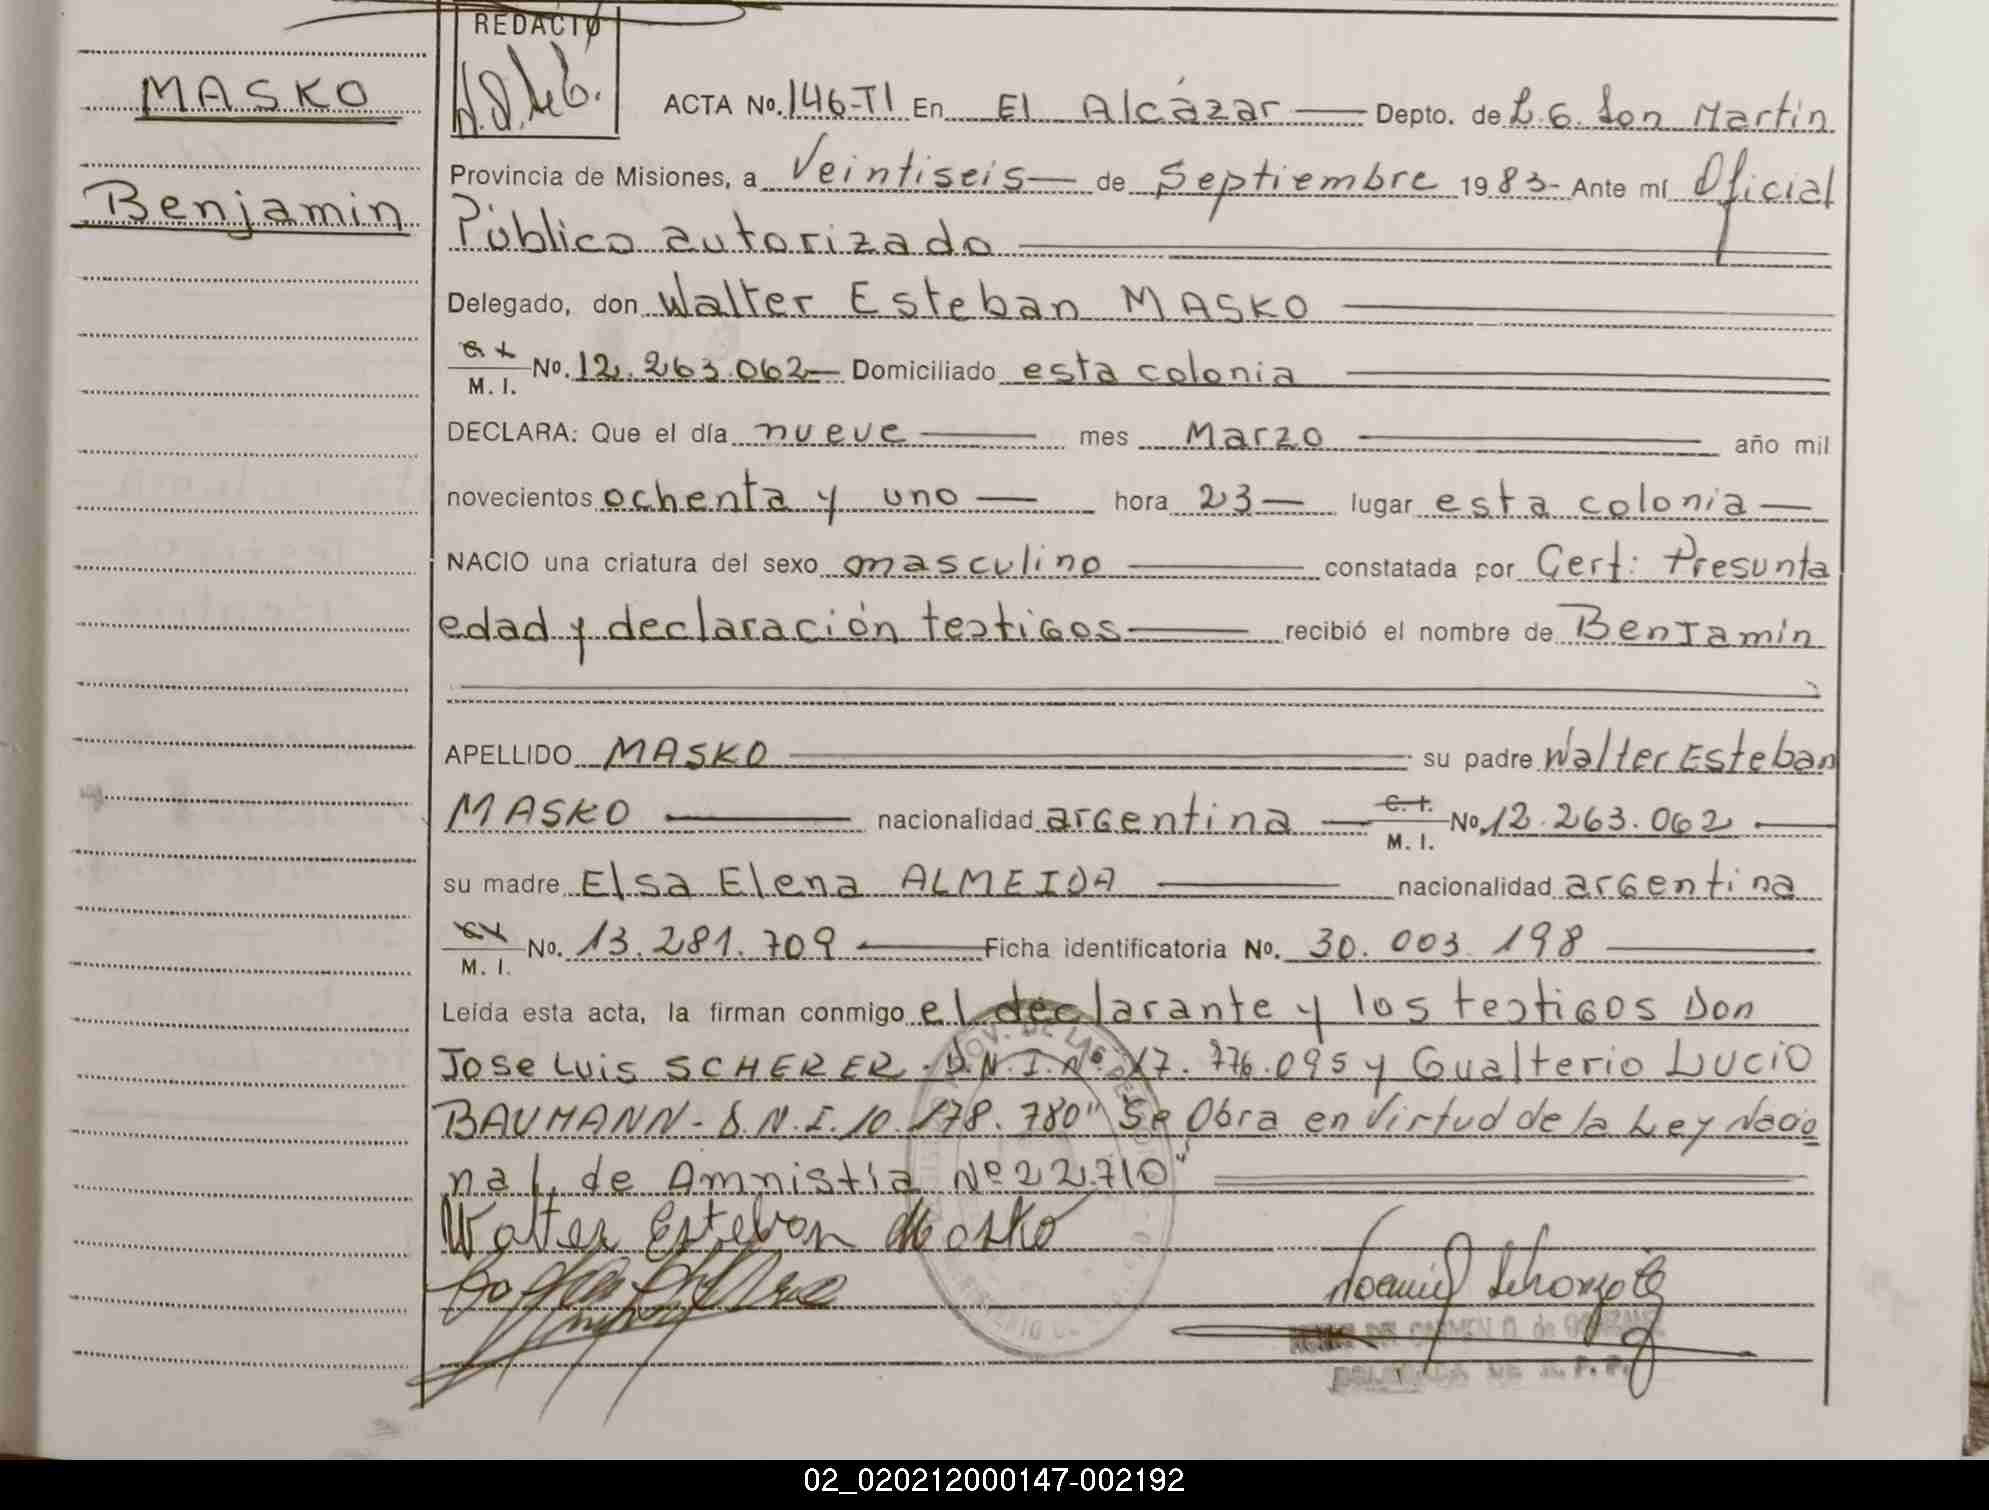 MASKO
Benjamin
REDACTO
ACTA No. 146-TI En El Alcázar Depto. de L. G. San Martin
Provincia de Misiones, a Veintiseis de Septiembre 1983- Ante mí Oficial
Público autorizado
Delegado, don Walter Esteban MASKO
M. I. No. 12.263.062 Domiciliado esta colonia
DECLARA: Que el día nueve mes Marzo año mil
novecientos ochenta y uno hora 23 lugar esta colonia
NACIO una criatura del sexo masculino constatada por Cert: Presunta
edad y declaración testigos recibió el nombre de Benjamin
APELLIDO MASKO su padre Walter Esteban
MASKO nacionalidad argentina C. I. M. I. No. 12.263.062
su madre Elsa Elena ALMEIDA nacionalidad argentina
M. I. No. 13.281.709 Ficha identificatoria No. 30.003.198
Leída esta acta, la firman conmigo el declarante y los testigos Don
Jose Luis SCHERER. D.N.I.Nº 17.776.095 y Gualterio Lucio
BAUMANN - D.N.I. 10.178.780" Se Obra en Virtud de la Ley Nacio
nal de Amnistía Nº 22.710"
Walter Esteban Masko
02_020212000147-002192